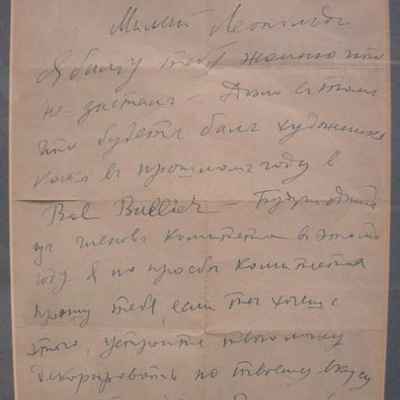 Милый Леопольд
Я был у тебя жалко что
не застал – Дело в том
что будет бал художников
как в прошлом году в
Bal Bullier –
из членов комитета в этом
году я по просьбе комитета
прошу тебя, если ты хочешь
этого, устроить твою ложу
декорировать по твоему вкусу